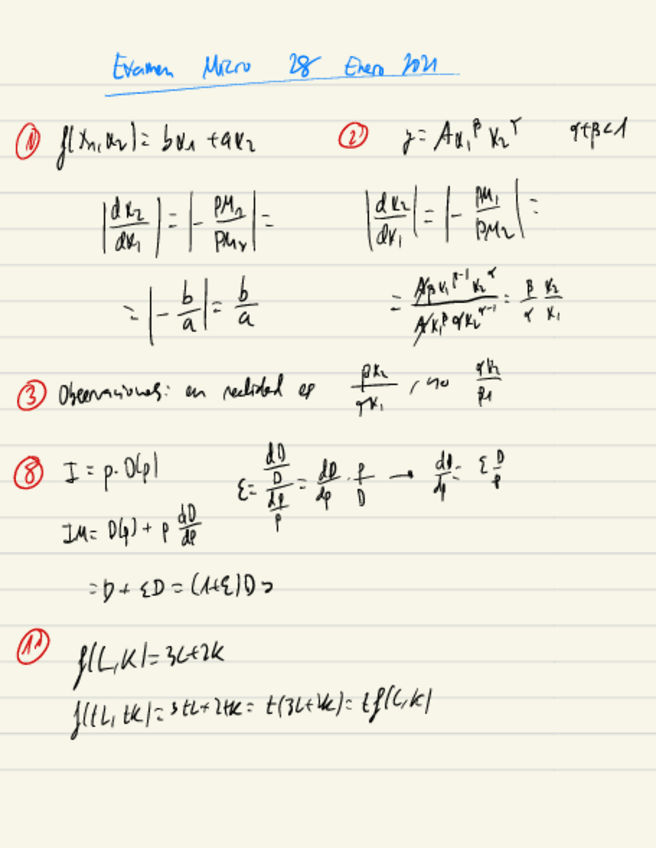 Examen Micro 28 Enero 2021
① f(x₁,x₂) = bx₁ + ax₂
|dx₂/dx₁| = |- PM₁/PM₂| =
= |- b/a| = b/a
② y = Ax₁^β x₂^α α+β<1
|dx₂/dx₁| = |- PM₁/PM₂| =
= Aβx₁^(β-1) x₂^α / Ax₁^β αx₂^(α-1) = β/α x₂/x₁
③ Observaciones: en realidad es βx₂/αx₁, no
⑧ I = p·D(p)
ε = (dD/D)/(dp/p) = dD/dp · p/D → dD/dp = ε D/p
IM = D(p) + p dD/dp
= D + εD = (1+ε)D
f(L,K) = 3L+2K
f(tL, tK) = 3tL+2tK = t(3L+2K) = t f(L,K)